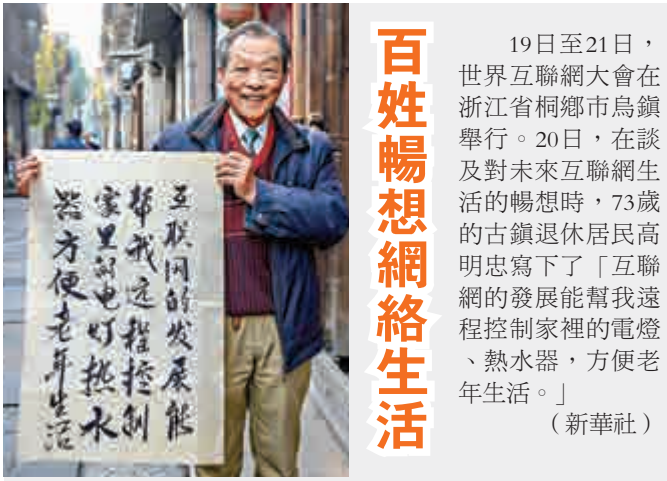 互联网的发展能
帮我远程控制
家里的电灯热水
器方便老年生活
百姓暢想網絡生活
19日至21日，
世界互聯網大會在
浙江省桐鄉市烏鎮
舉行。20日，在談
及對未來互聯網生
活的暢想時，73歲
的古鎮退休居民高
明忠寫下了「互聯
網的發展能幫我遠
程控制家裡的電燈
、熱水器，方便老
年生活。」
（新華社）